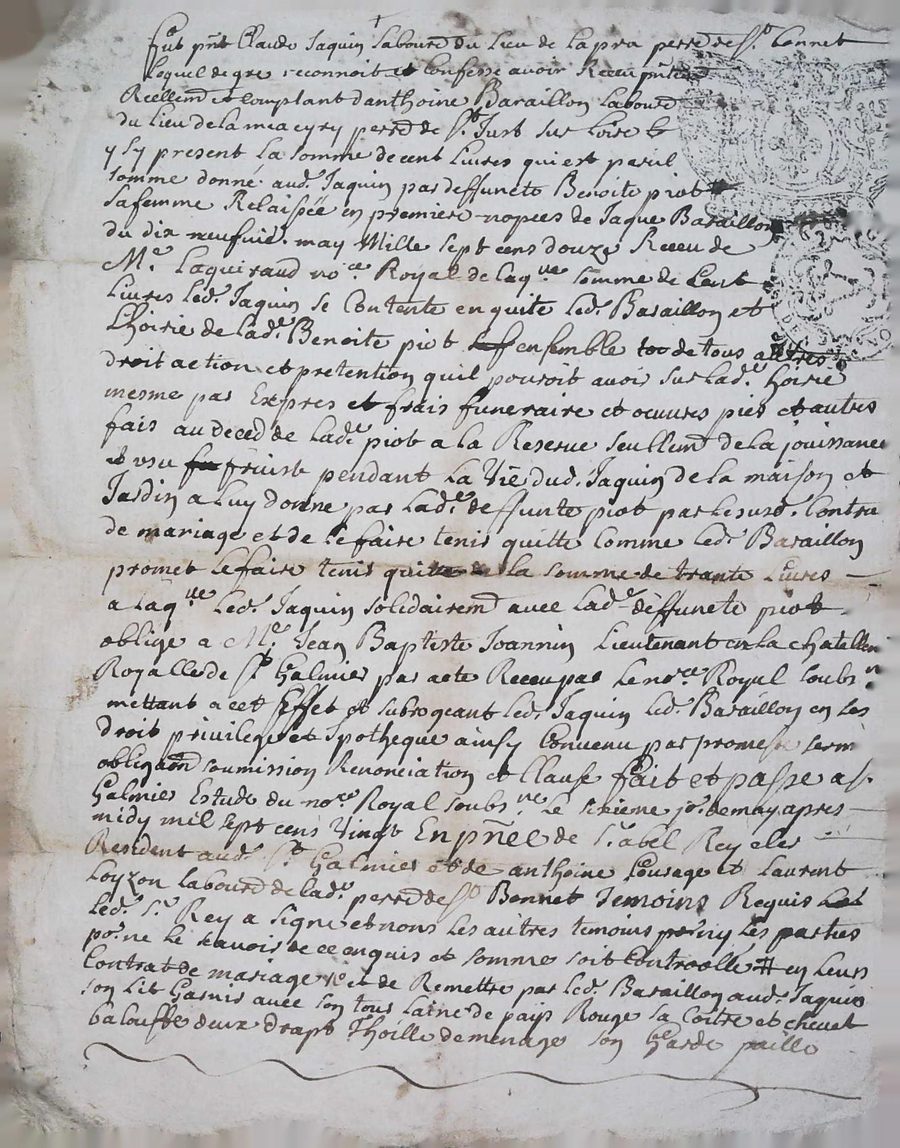 fut pñt Claude Jaquin Labourd du Lieu de Lapra perrd de St. Bonnet
Lequel de gre reconnoit et Confesse avoir Receu pñte
Reellemd et Comptant danthoine Baraillon Labourd
du Lieu de perrd de St. Just sur Loire
y sy present La somme de cent Livres qui est pareil
somme donné aud. Jaquin par deffuncte Benoite piot
sa femme Relaissée en premiere nopces de Jaque Baraillon
du dix neufvie. may Mille sept cens douze Receu de
Me. Laqueiraud nore Royal de laque somme de Cent
Livres Led. Jaquin se Contente en quite Led. Baraillon et
Lhoirie de Lade. Benoite piot ensemble de tous autres
droit action et pretention quil pouroit avoir sur Lade. hoirie
mesme par Expres et frais funeraire et oeuvres pies et autres
fais au deced de Lade. piot a la Reserve seullemd de la jouissance
et usu fruist pendant La Vie dud. Jaquin de la maison et
Jardin a Luy donne par Lade. deffunte piot par Lesusd. Contra
de mariage et de Le faire tenir quitte Comme Led. Baraillon
promet Le faire tenir quitte de la somme de trante Livres
a Laque Led. Jaquin solidairemd avec Lade. deffuncte piot
oblige a Me. Jean Baptiste Joannin Lieutenant en la chatelle
Royalle de St Galmier par acte Receu par Le nore Royal soubs
mettant a cet Effet et subrogeant Led. Jaquin Led. Baraillon en ses
droit privilege et Ipotheque ainsy Convenu par promesse serm
obligaon soumission Renonciation et Clause fait et passe a St.
Galmier Estude du nore Royal soubs ne Le sixieme jor. de may apres
midy mil sept cens Vingt En pñce de Sr. abel Rey clerc
Resident aud. St Galmier et de anthoine Pousage et Laurent
Loyzon Labourd de Lade. perrd de St Bonnet Temoins Requis
Led. Sr. Rey a signe et nons Les autres temoins ny Les parties
por. ne Le scavoir de ce enquis et somme soit Controolle # en Leurs
Contrat de mariage et de Remettre par Led. Baraillon aud. Jaquin
son Lit Garnis avec son tous Laine de pays Rouge sa Coitre et chevet
balouffe deux drapt Thoille de menage son Garde paille